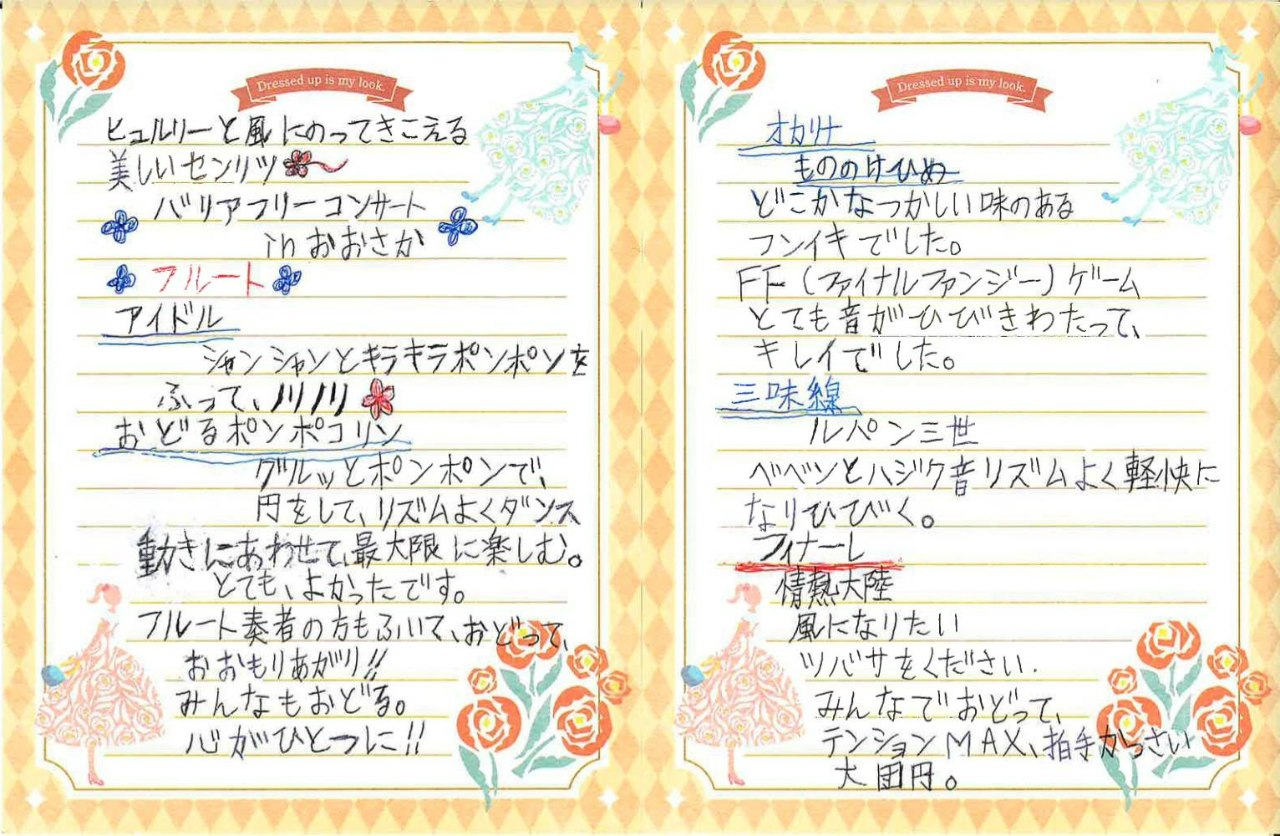 Dressed up is my look.
ヒュルリーと風にのってきこえる
美しいセンリツ
バリアフリーコンサート
inおおさか
フルート
アイドル
シャンシャンとキラキラポンポンを
ふって、ノリノリ
おどるポンポコリン
グルッとポンポンで、
円をして、リズムよくダンス
動きにあわせて、最大限に楽しむ。
とても、よかったです。
フルート奏者の方もふいて、おどって、
おおもりあがり!!
みんなもおどる。
心がひとつに!!
Dressed up is my look.
オカリナ
もののけひめ
どこかなつかしい味のある
フンイキでした。
FF(ファイナルファンジー)ゲーム
とても音がひびきわたって、
キレイでした。
三味線
ルパン三世
ベベンとハジク音リズムよく軽快に
なりひびく。
フィナーレ
情熱大陸
風になりたい
ツバサをください.
みんなでおどって、
テンションMAX、拍手かっさい
大団円。